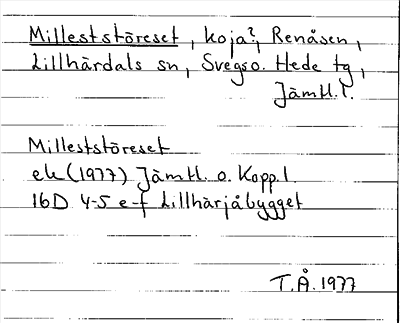 Milleststöreset, koja?, Renåsen,
Lillhärdals sn, Svegs o. Hede tg,
Jämtl.l.
Milleststöreset
ek (1977) Jämtl. o. Kopp.l.
16D 4-5 e-f Lillhärjåbygget
T.Å. 1977